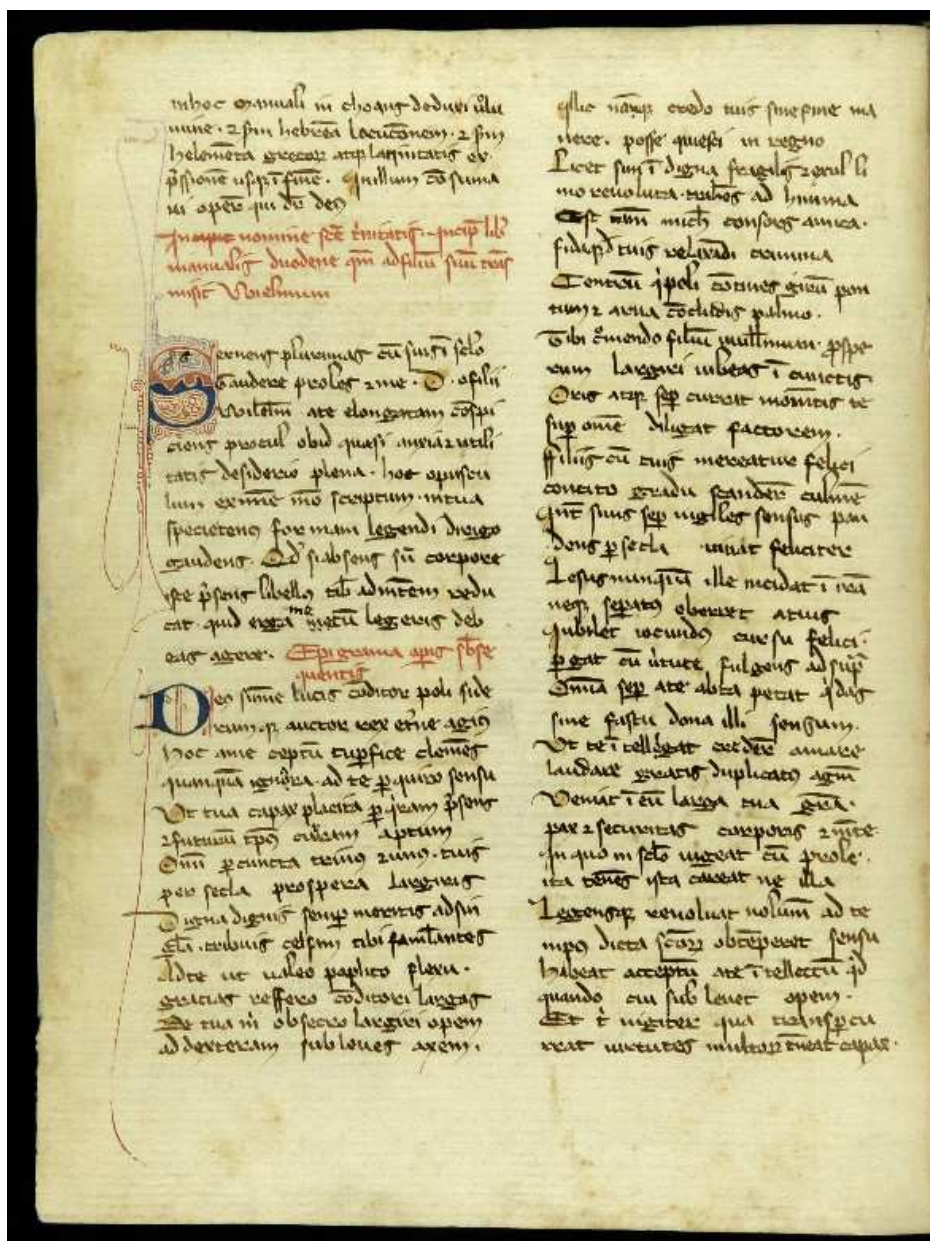 in hoc manuali in choans deduxi uolu
mine · ⁊ sm̄ hebrea locuc̄onem · ⁊ sm̄
helementa grecoꝝ atqꝫ latinitatis ex
p̄ssionem usqꝫ ī finē · qui illum cōsuma
ui oper qui dr̄ deꝰ
Incipit nomine sc̄e t̄nitatis · Incip̄ lib̄
manualis duodene qm̄ ad filiū suū trās
misit Vuielmum
Cernens plurimas cū suis ī sc̄lo
Gaudere proles ⁊ me · D · o filii
Vuilelm̄ a te elongatam cōspi
ciens procul ob id quasi anxia ⁊ utili
tatis desiderio plena · hoc opuscu
lum ex nōīe meo scriptum · in tua
specietenꝰ formam legendi dirigo
gaudens · Qd̄ si absens sū corpore
iste p̄sens libellꝰ tibi ad mētem redu
cat · quid erga me legeris deb
eas agere · Epigrama opis sb̄se
quentis
Deo sume lucis cōditor poli side
rum qꝫ auctor rex et̄ne agiꝰ
hoc a me ceptū tu ꝑfice clemēs
quanquā ignara · ad te ꝑquiro sensu
Vt tua capax placita ꝑquiram p̄sens
⁊ futurum tp̄s curram aptum
Om̄i ꝑ cuncta trinus ⁊ unus · tuis
per secla prospera largiris
Digna dignis semꝑ meritis ad sin
gl̄a · tribuis celsim tibi faml̄antes
Ad te ut ualeo poplito flexu ·
gracias reffero cōditori largas
De tua m̄ obsecro largiri opem
ad dexteram subleues axem ·
Illic nāqꝫ credo tuis sine fine ma
nere · posse quiesci in regno
Licet sim ī digna fragilis ⁊ exul li
mo reuoluta · trahēs ad hinima
Est tam̄ mich̄ consors amica ·
fidaqꝫ d̄ tuis relaxādi crimina
Centrū q̇ poli cōtines girū pon
tum ⁊ arua cōcludis palmo ·
Tibi cōmendo filiū uuillmum · ꝓspe
rum largiri iubeas ī cunctis
Oris atqꝫ sēp currat momētis te
suꝑ omē diligat factorem ·
Filiis cū tuis mereatur felici
concito gradu scandere culmē
In te suus sēp uigiles sensus pan
dens ꝑ secla uiuat feliciter
Lesus nunquā ille incidat ī irā
neqꝫ seꝑatꝰ oberret a tuis
Iubilet iocundꝰ cursu felici ·
ꝑgat cū u̇tute fulgens ad sup̄
Om̄ia sēp a te abta petat q̇ das
sine fastu dona illi sensum ·
Vt te ītelligat credere amare
laudare gratis duplicatꝰ agm̄
Veniat ī eū larga tua gr̄a ·
pax ⁊ securitas corporis ⁊ mēte
In quo in sc̄lo uigeat cū prole ·
ita tenēs ista careat ne illa
Legensqꝫ reuoluat uolum̄ ad te
mpꝰ dicta sc̄oꝝ obtēperet sensu
habeat acceptū a te ītellectū qd
quando cui subleuet opem ·
Et t̄ iugiter qua transꝑcu
rrat uirtutes multoꝝ teneat capax ·